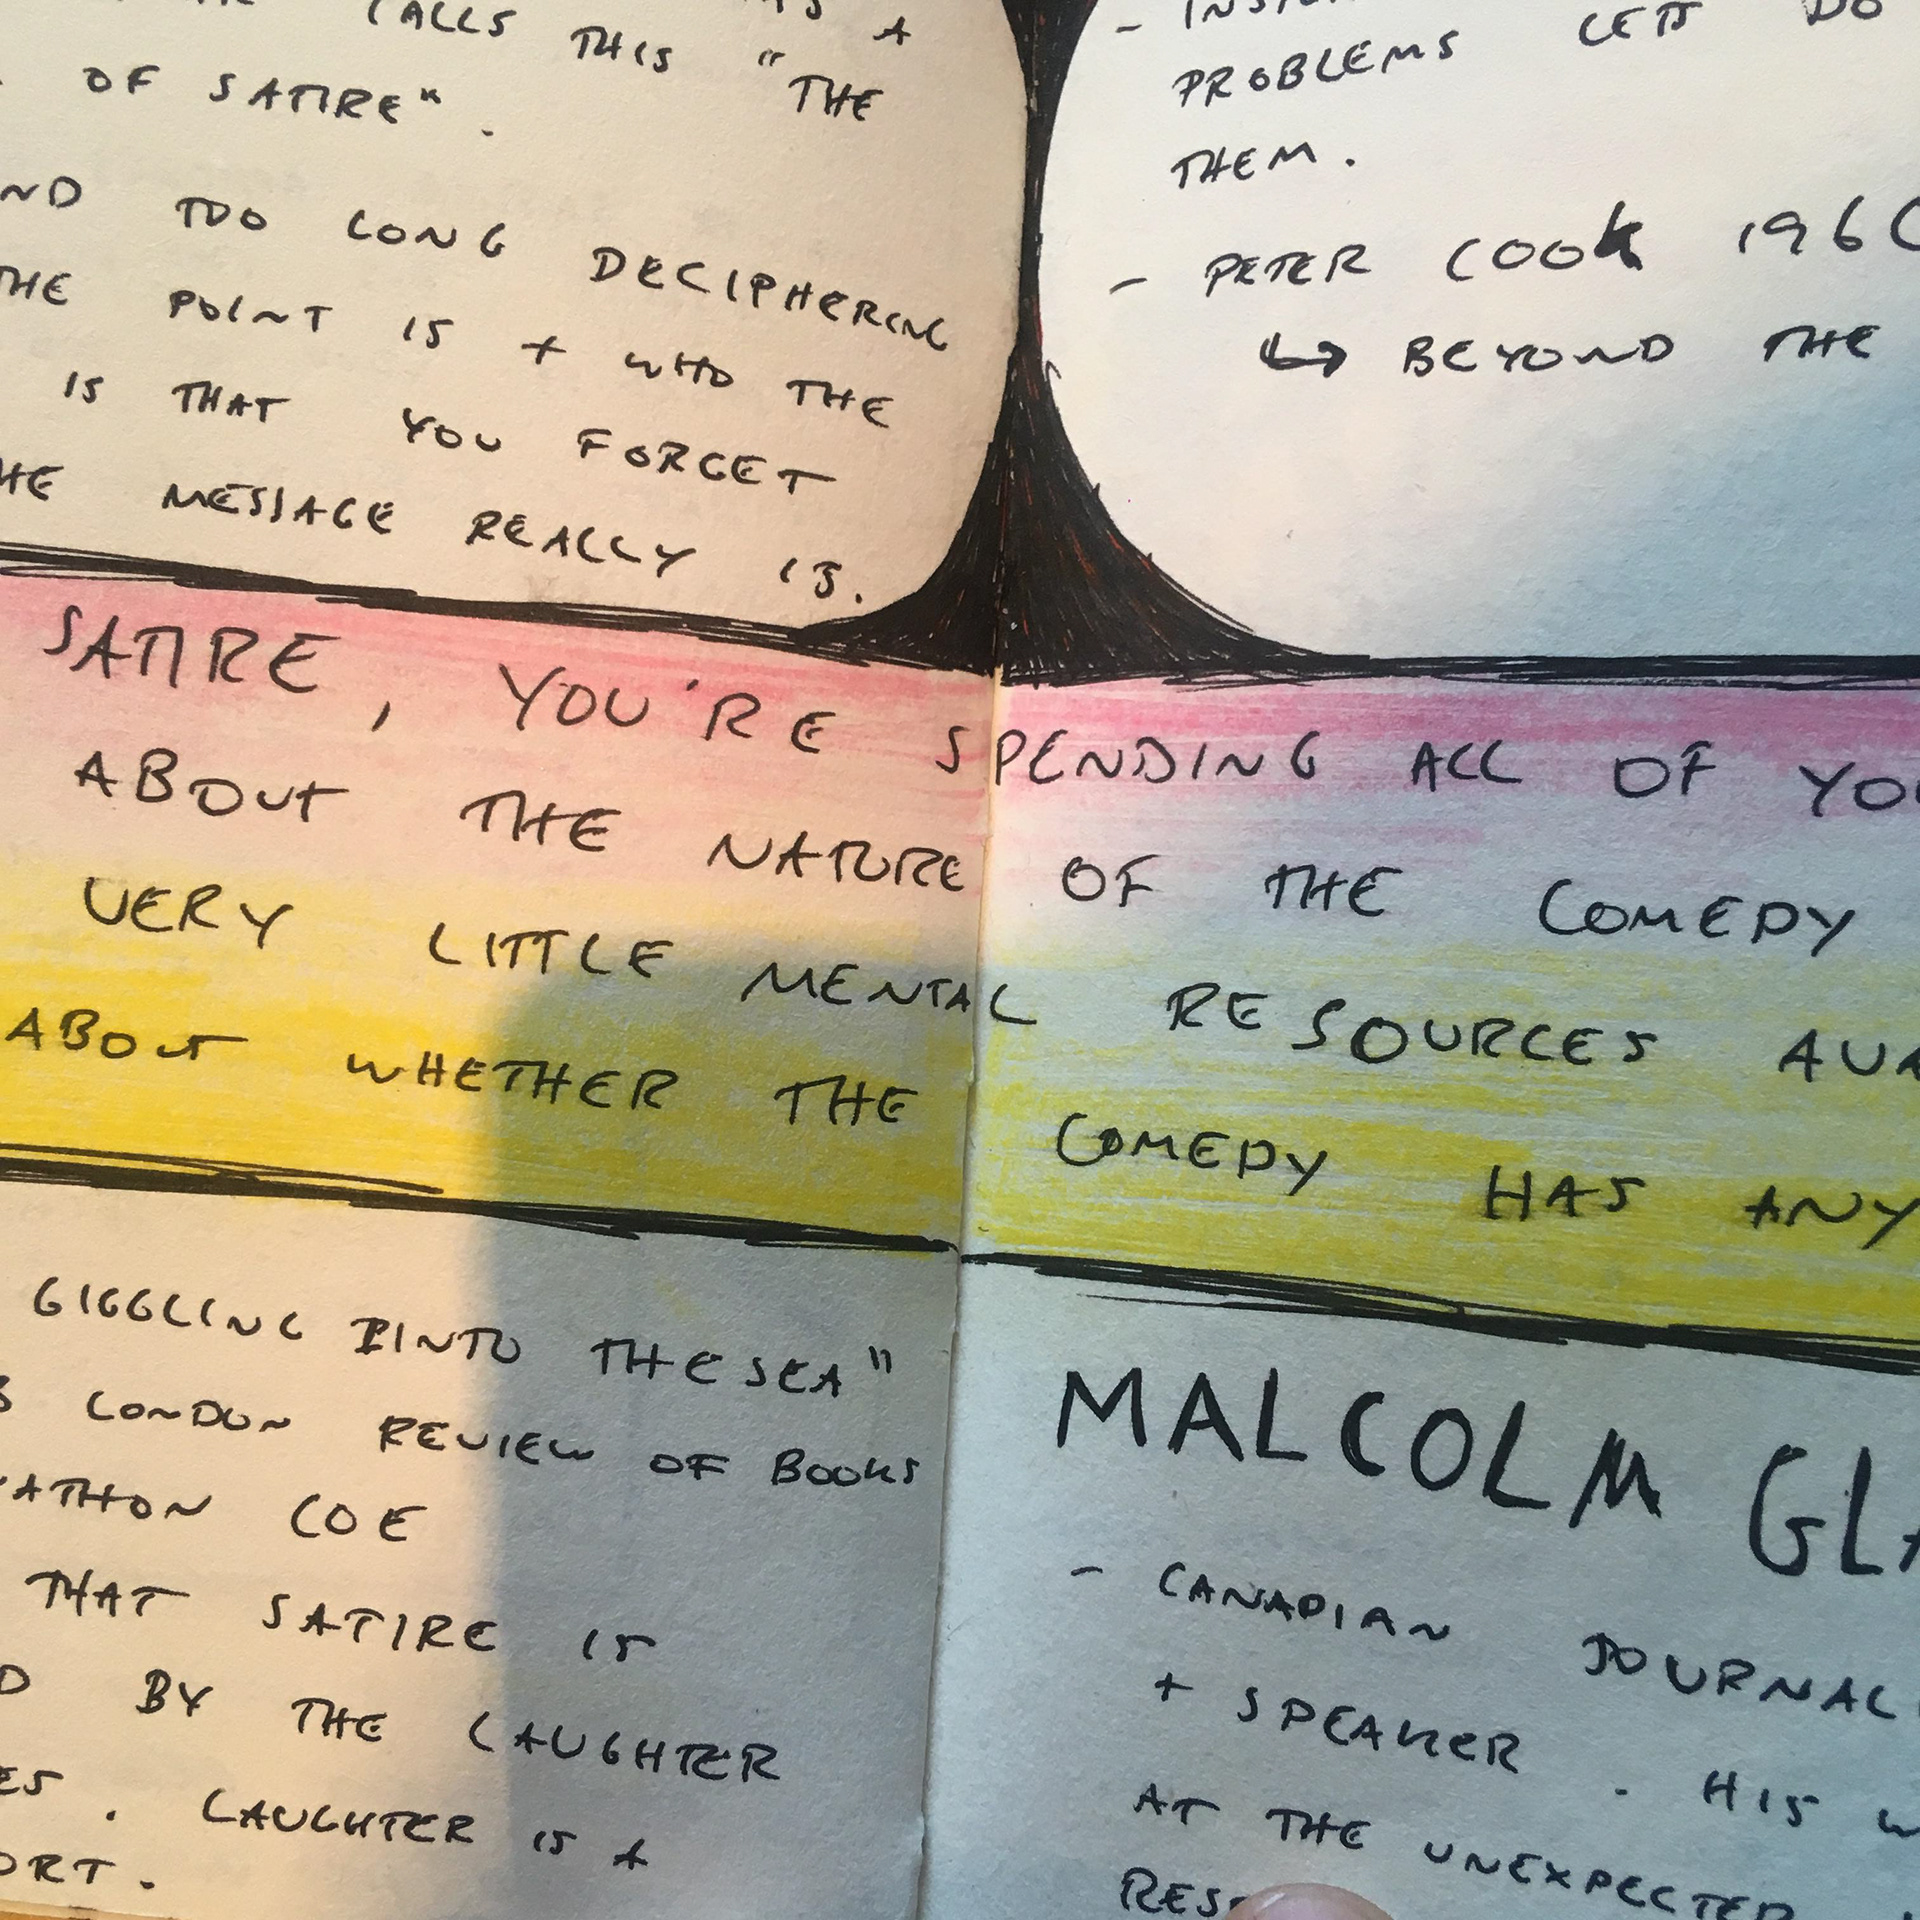 CALLS THIS "THE
OF SATIRE".
TOO LONG DECIPHERING
THE POINT IS + WHO THE
IS THAT YOU FORGET
MESSAGE REALLY IS.
PROBLEMS LETS DO
THEM.
- PETER COOK 196
↪ BEYOND THE
SATIRE, YOU'RE SPENDING ALL OF
ABOUT THE NATURE OF THE COMEDY
VERY LITTLE MENTAL RESOURCES
ABOUT WHETHER THE COMEDY HAS ANY
GIGGLING INTO THE SEA"
LONDON REVIEW OF BOOKS
COE
THAT SATIRE IS
BY THE LAUGHTER
. LAUGHTER IS A
MALCOLM
- CANADIAN
+ SPEAKER. HIS
AT THE UNEXPECTED